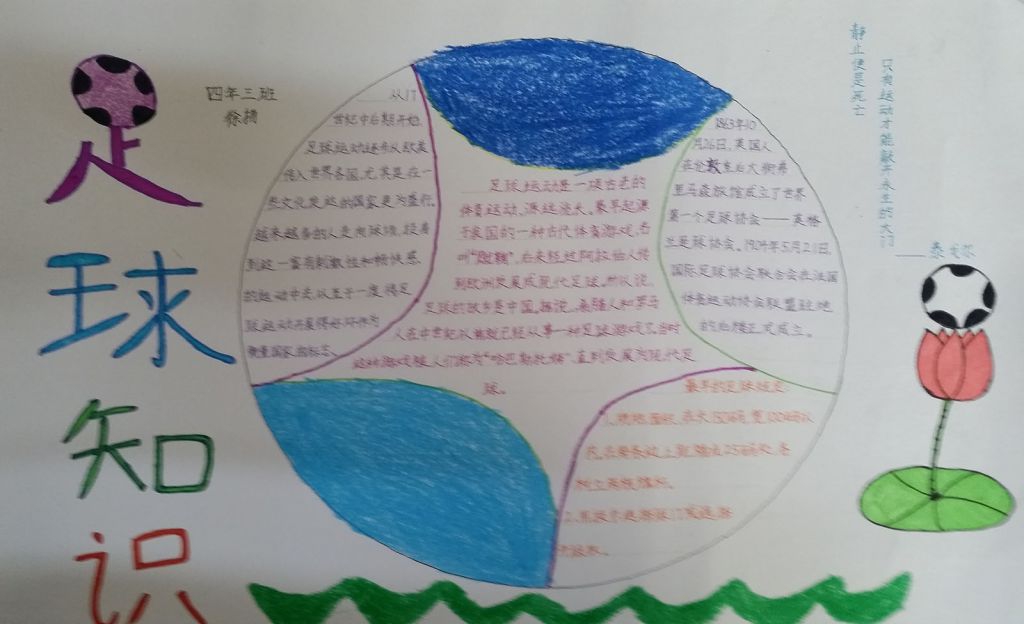 足
球
知
识
四年三班
从17
世纪中后期开始,
足球运动逐布从欧美
传入世界各国,尤其是在一
些文化发达的国家更为盛行。
越来越多的人走向球场,投身
到这一富有刺激性和畅快感
的运动中去,以至于一度将足
球运动开展得好坏作为
衡量国家的标志。
足球运动是一项古老的
体育运动,源远流长。最早起源
于我国的一种古代体育游戏,名
叫“蹴鞠”,后来经过阿拉伯人传
到欧洲发展成现代足球。所以说,
足球的故乡是中国。据说,希腊人和罗马
人在中世纪以前就已经从事一种足球游戏了。当时
这种游戏被人们称为“哈巴斯托姆”,直到发展为现代足
球。
1863年10
月26日,英国人
在伦敦皇后大街弗
里马森旅馆成立了世界
第一个足球协会——英格
兰足球协会。1904年5月21日,
国际足球协会联合会在法国
体育运动协会联盟驻地
的后楼正式成立。
最早的足球规则:
1、球场面积,
2、
静止便是死亡
只有运动才能敲开永生的大门
——泰戈尔